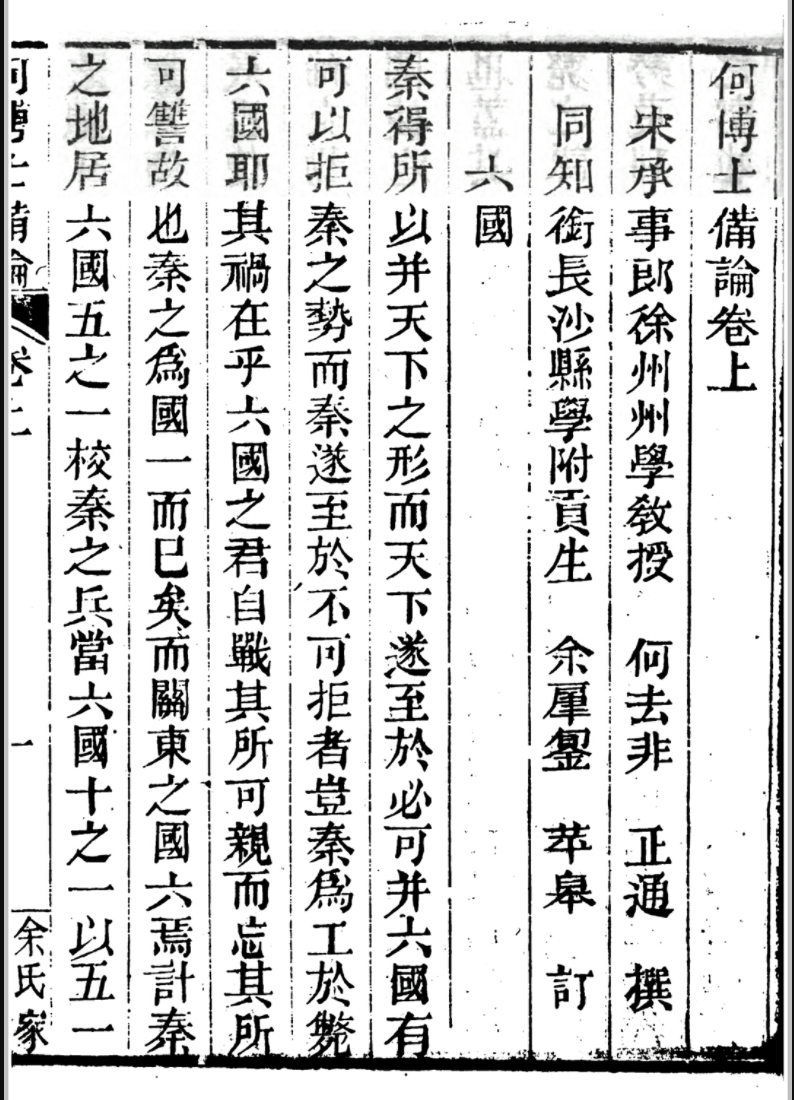 何博士備論卷上
宋承事郎徐州州學敎授　何去非　正通　撰
同知銜長沙縣學附貢生　余肇鋆　苹皋　訂
六國
秦得所以并天下之形而天下遂至於必可并六國有
可以拒秦之勢而秦遂至於不可拒者豈秦爲工於斃
六國耶其禍在乎六國之君自戰其所可親而忘其所
可讐故也秦之爲國一而已矣而關東之國六焉計秦
之地居六國五之一校秦之兵當六國十之一以五一
何博士備論　卷上　一　余氏家